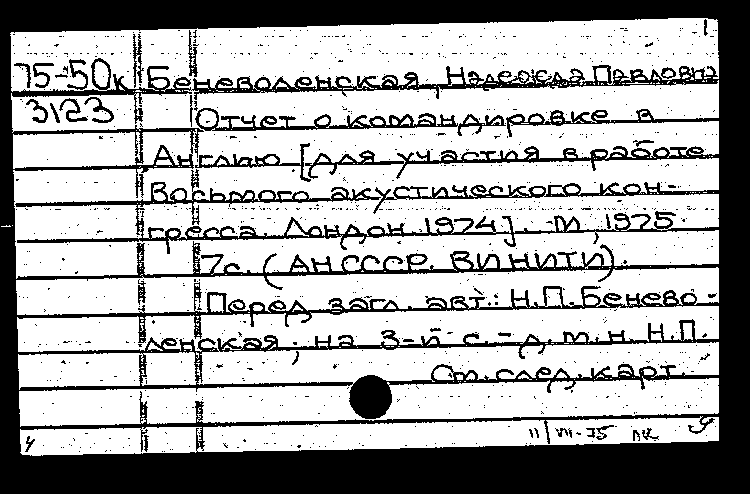 1
75-50к Беневоленская, Надежда Павловна
3123 Отчет о командировке в
Англию [для участия в работе
Восьмого акустического кон-
гресса. Лондон. 1974]. - М., 1975.
7с. (АН СССР. ВИНИТИ).
Перед загл. авт.: Н.П. Бенево-
ленская; на 3-й с. - д.т.н. Н.П.
См. след. карт.
4 11/VII-75